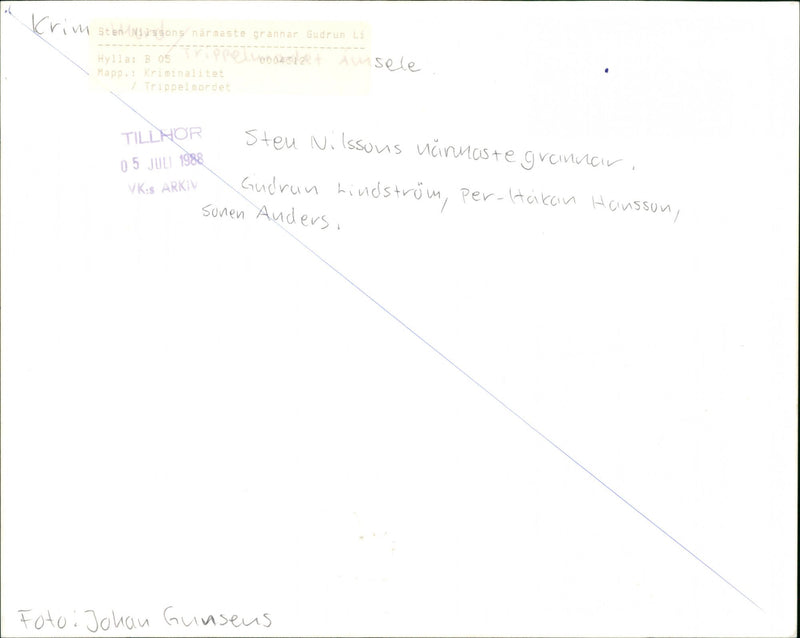 Krim Mord
Sten Nilssons närmaste grannar Gudrun Li
Trippelmordet Amsele
Hylla: B 05
Mapp.: Kriminalitet
/ Trippelmordet
TILLHÖR
05 JULI 1988
VK:s ARKIV
Sten Nilssons närmaste grannar.
Gudrun Lindström, Per-Håkan Hansson,
sonen Anders.
Foto: Johan Gunséus